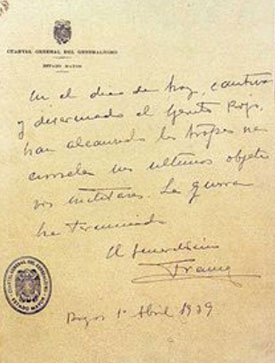 CUARTEL GENERAL DEL GENERALISIMO
ESTADO MAYOR
En el día de hoy, cautivo
y desarmado el Ejército Rojo,
han alcanzado las tropas na-
cionales sus ultimos objeti-
vos militares. La guerra
ha terminado
El Generalísimo
Franco
Burgos 1º Abril 1939
CUARTEL GENERAL DEL GENERALISIMO
ESTADO MAYOR